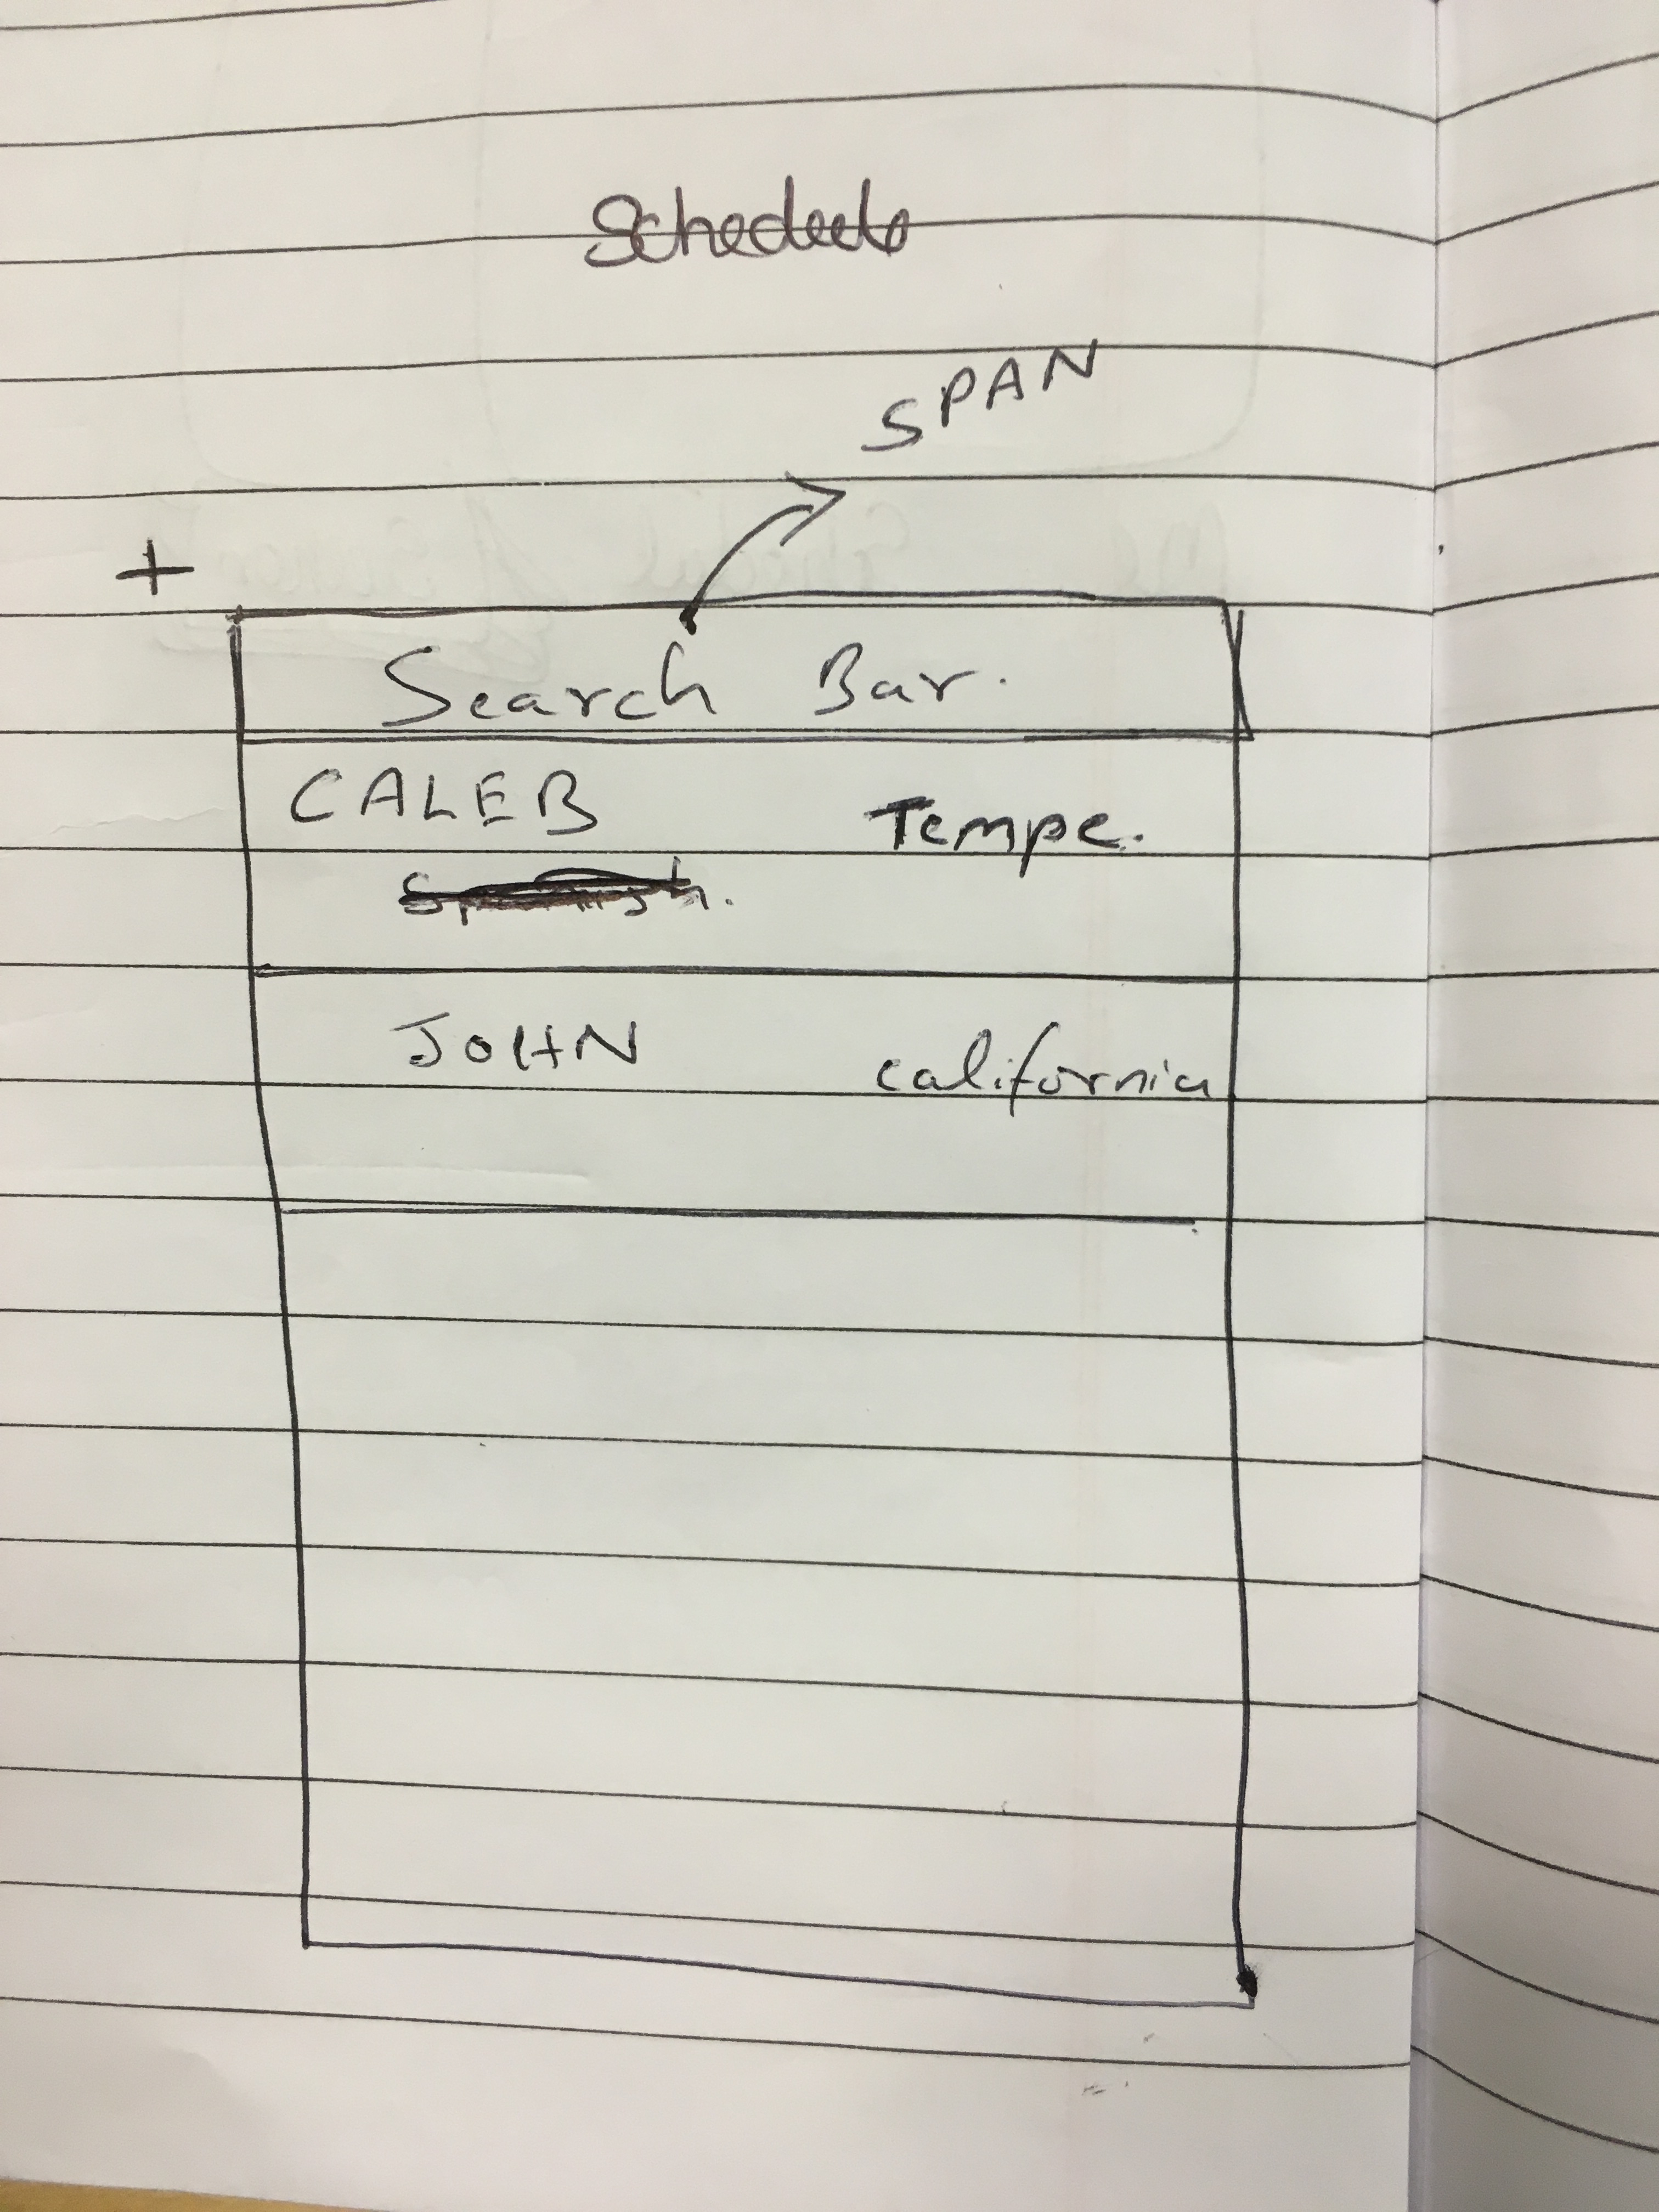 Schedule
SPAN
+
Search Bar.
CALEB Tempe.
JOHN california